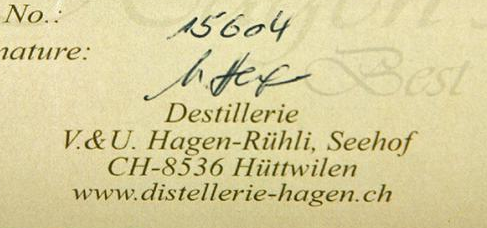 No.: 15604
nature:
Best
Destillerie
V.&U. Hagen-Rühli, Seehof
CH-8536 Hüttwilen
www.distellerie-hagen.ch